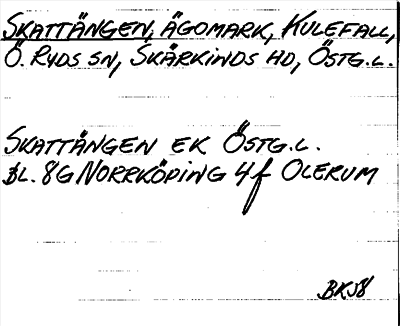 SKATTÄNGEN, ÄGOMARK, KULEFALL,
Ö. RYDS SN, SKÄRKINDS HD, ÖSTG.L.
SKATTÄNGEN EK ÖSTG.L.
BL. 8G NORRKÖPING 4f OLERUM
BKJ8